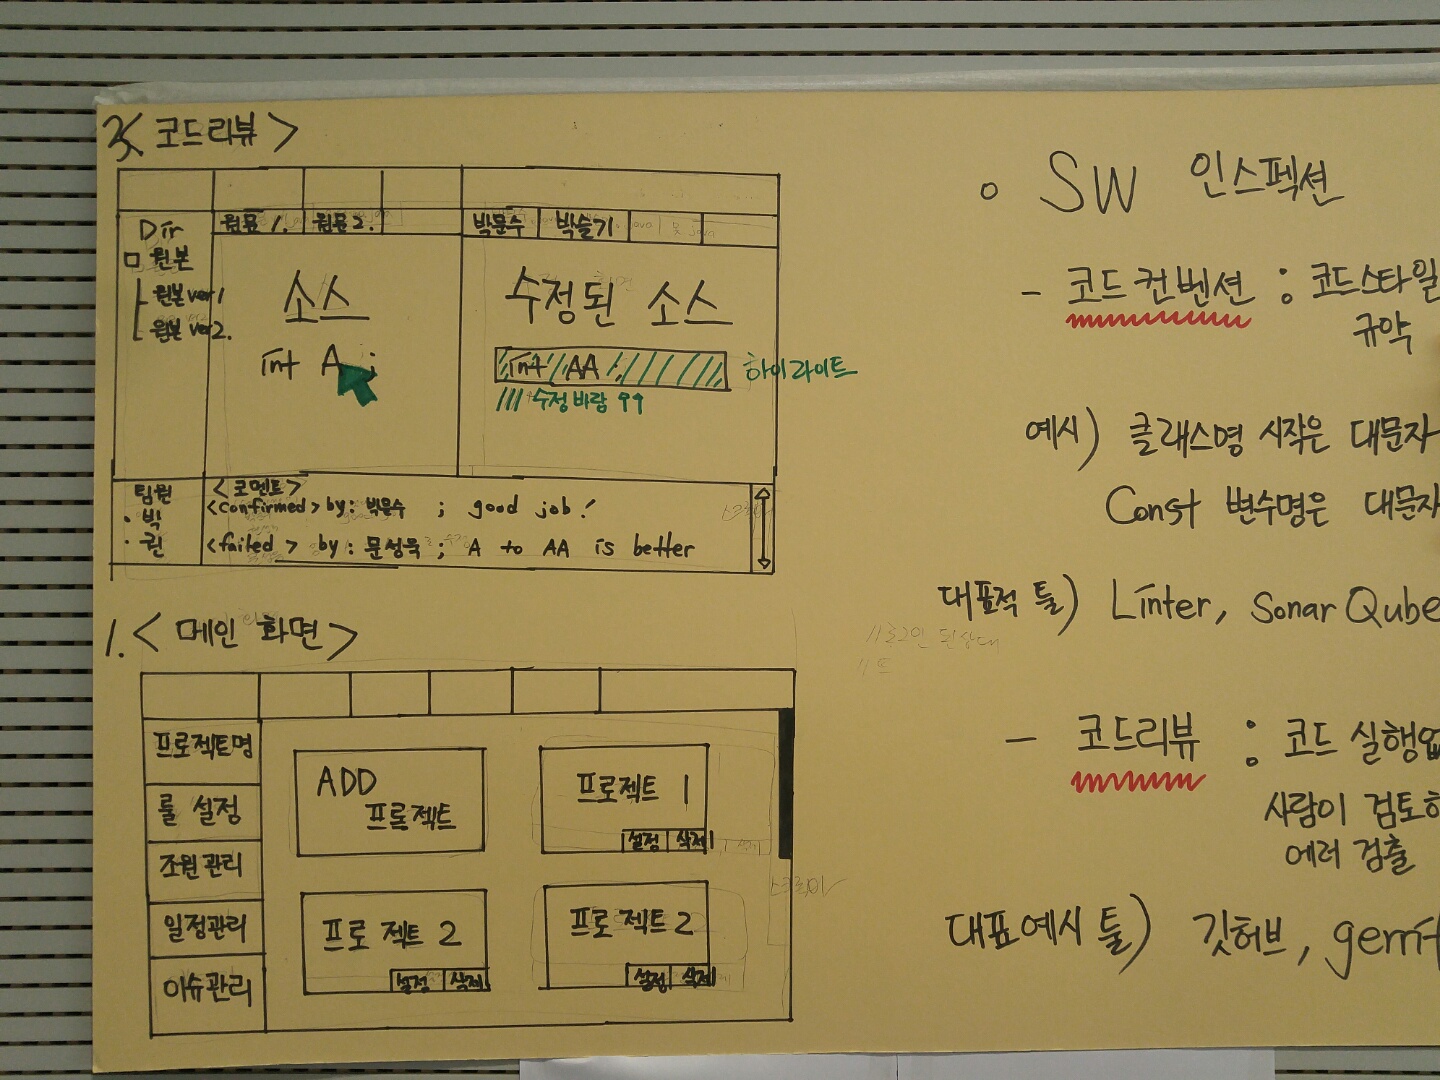 3. <코드리뷰>
원본 1. 원본 2. 박문수 박슬기
Dir
ㅁ 원본
원본 ver1
원본 ver2.
소스
int A ;
수정된 소스
int AA
하이라이트
/// 수정바람 ㅇㅇ
팀원
· 박
· 권
<코멘트>
<confirmed> by: 박문수 ; good job!
<failed> by: 문성욱 ; A to AA is better
1. <메인 화면>
프로젝트명
룰 설정
조원관리
일정관리
이슈관리
ADD
프로젝트
프로젝트 1
설정 삭제
프로젝트 2
설정 삭제
프로젝트 2
설정 삭제
//로그인 된상태
o SW 인스펙션
- 코드컨벤션 : 코드스타일
규약
예시) 클래스명 시작은 대문자
Const 변수명은 대문자
대표적 툴) Linter, SonarQube
- 코드리뷰 : 코드 실행없
사람이 검토하
에러 검출
대표예시 툴) 깃허브, gerrit